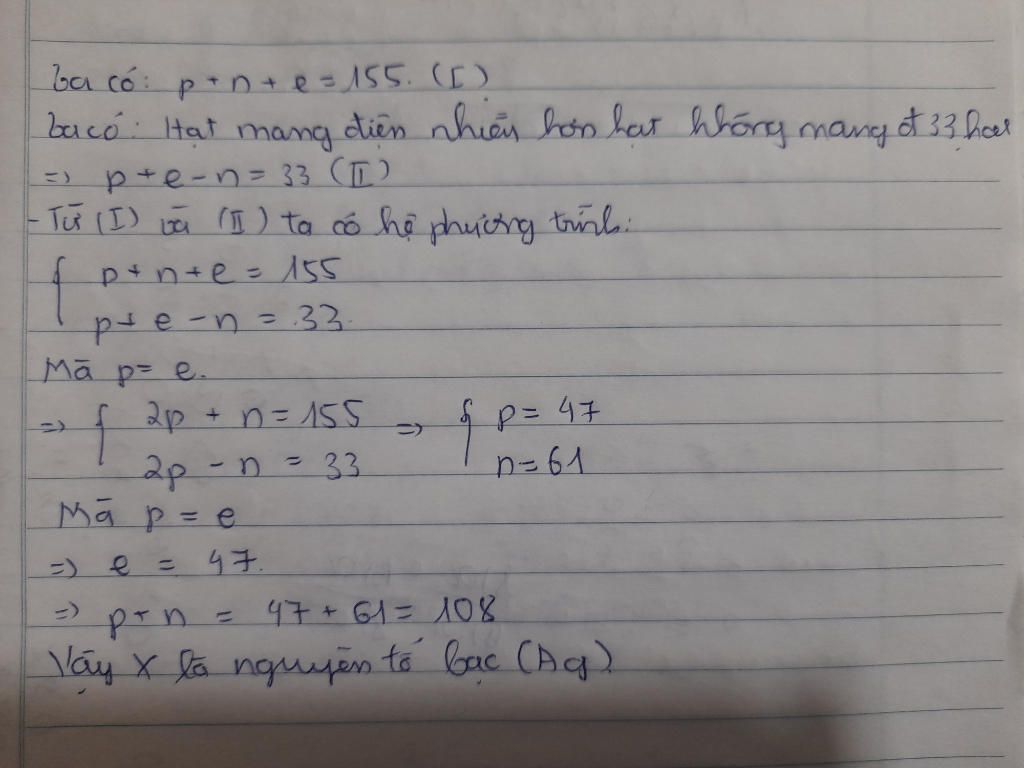 Ta có: p + n + e = 155. (I)
Ta có: Hạt mang điện nhiều hơn hạt không mang đ 33 hạt
=> p + e - n = 33 (II)
- Từ (I) và (II) ta có hệ phương trình:
{ p + n + e = 155
p + e - n = 33.
Mà p = e.
=> { 2p + n = 155 => { p = 47
2p - n = 33 n = 61
Mà p = e
=> e = 47.
=> p + n = 47 + 61 = 108
Vậy X là nguyên tố bạc (Ag)